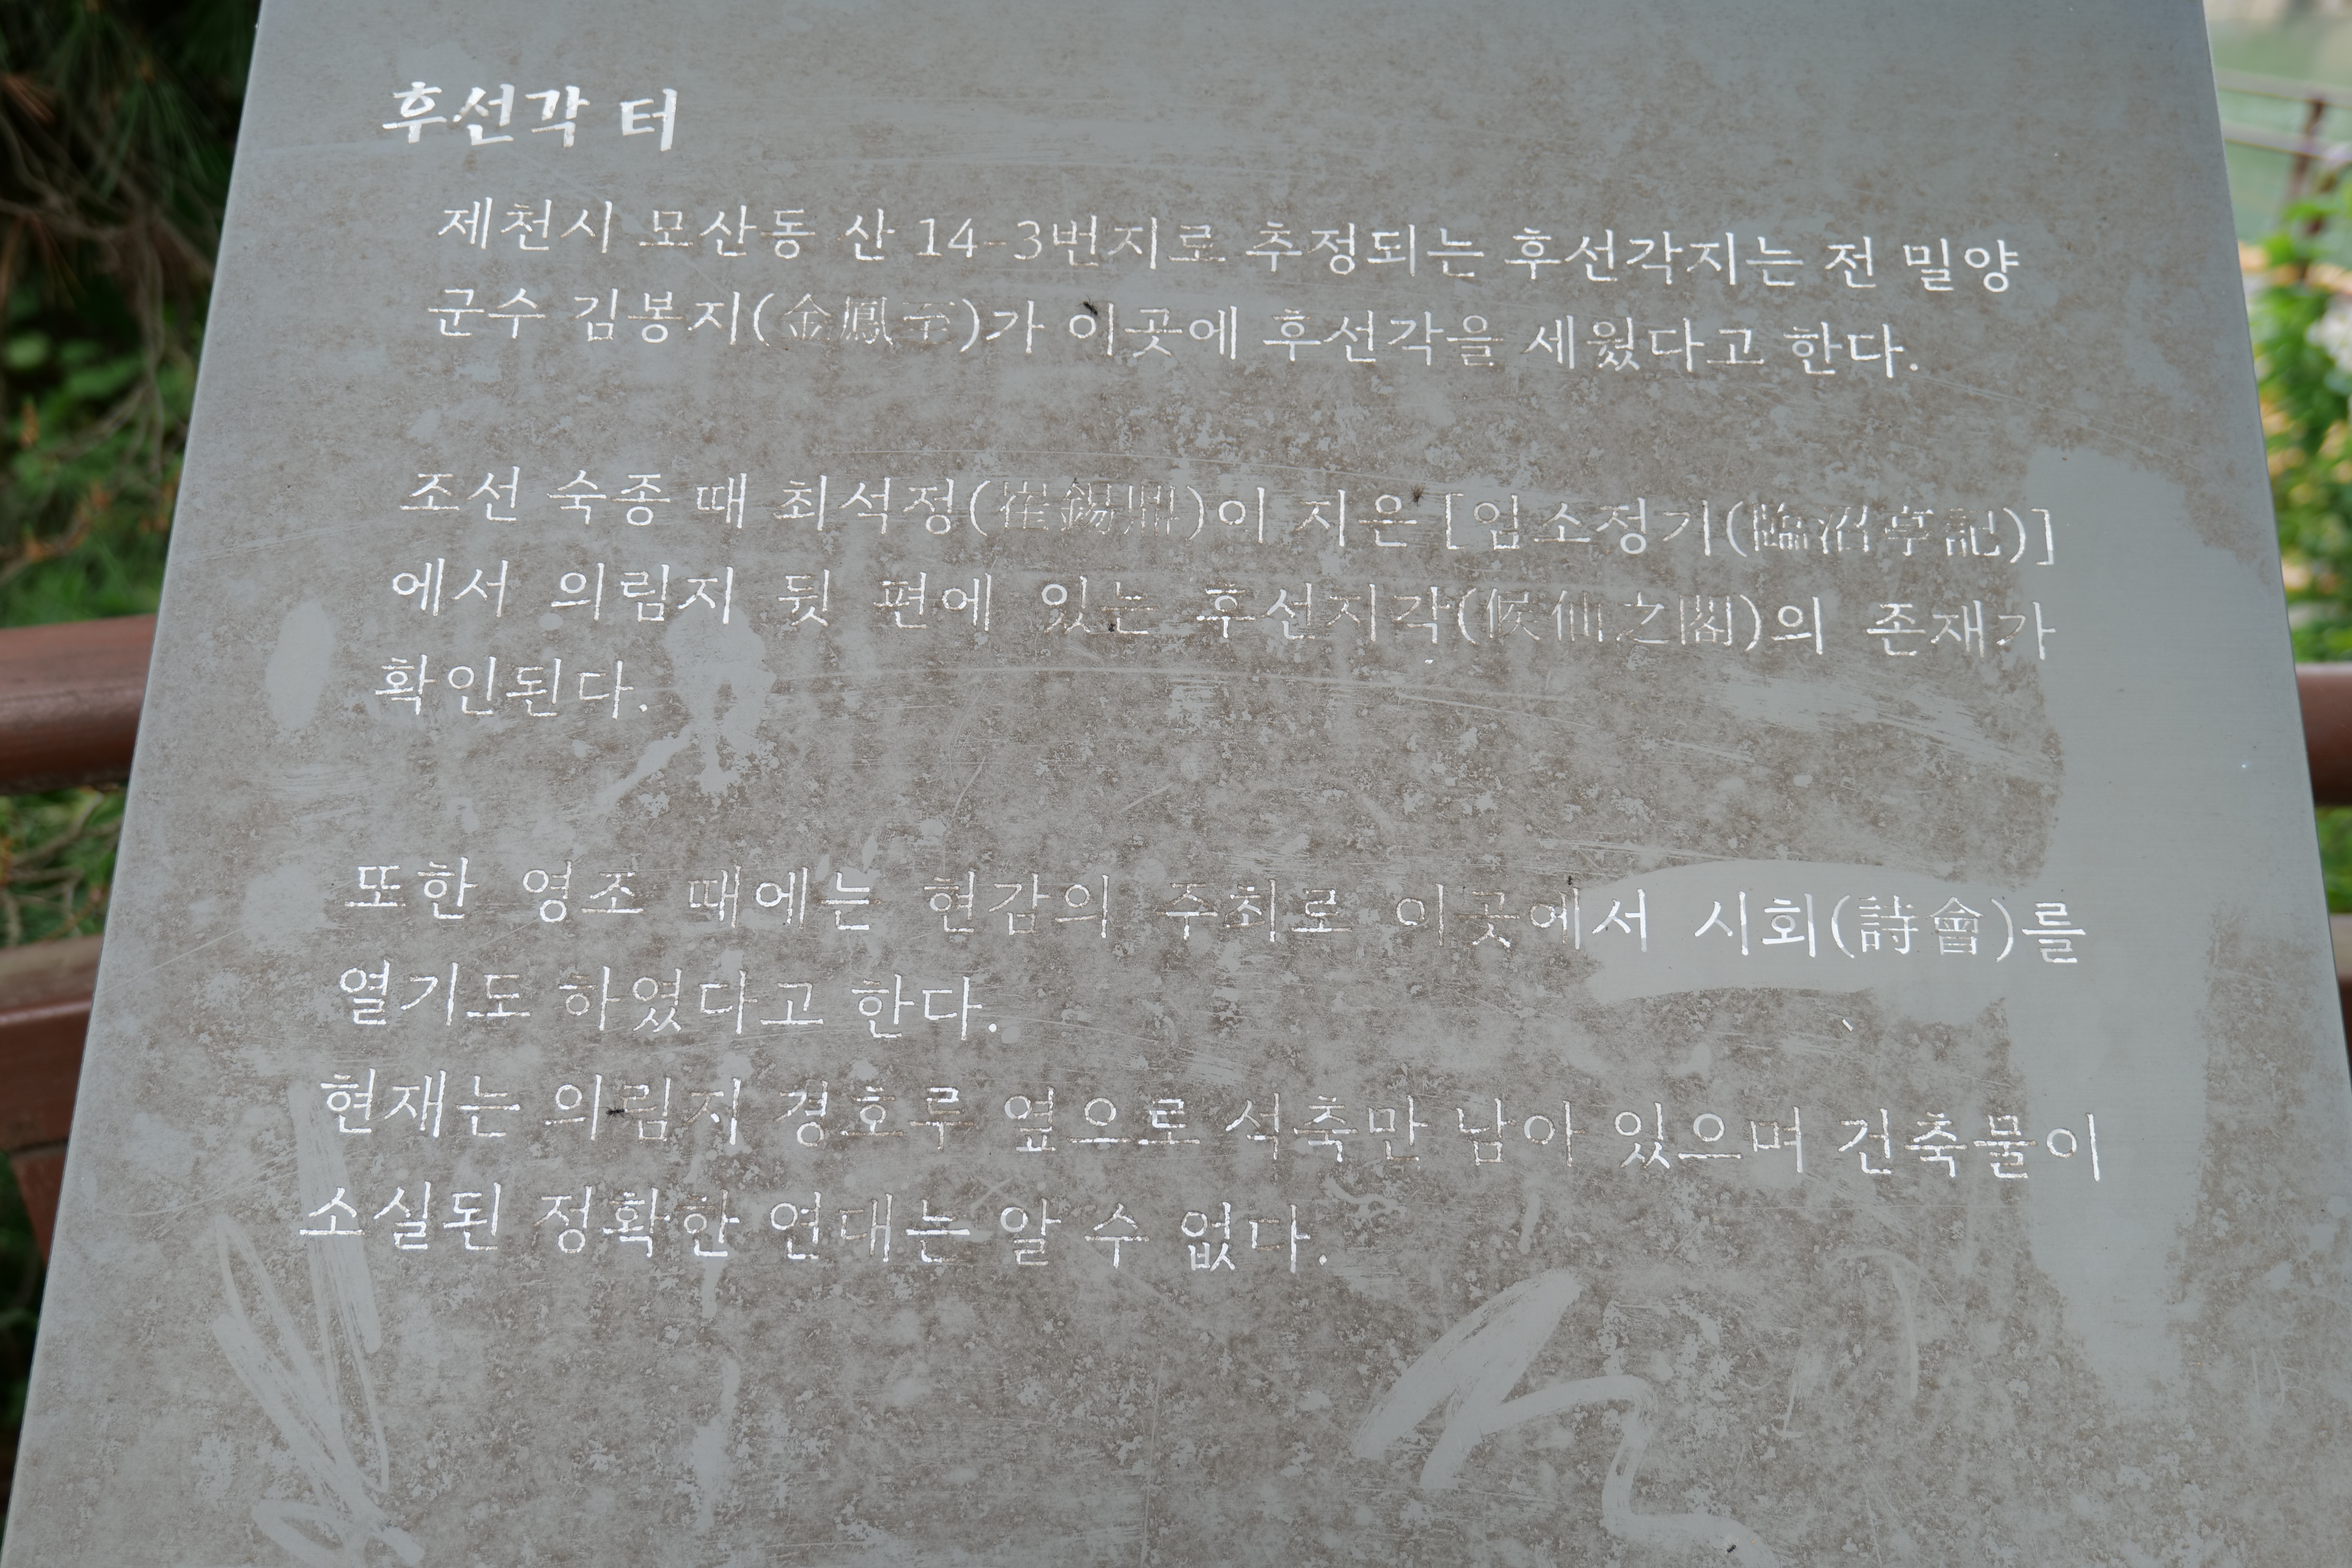 후선각 터
제천시 모산동 산 14-3번지로 추정되는 후선각지는 전 밀양
군수 김봉지(金鳳至)가 이곳에 후선각을 세웠다고 한다.
조선 숙종 때 최석정(崔錫鼎)이 지은 [임소정기(臨沼亭記)]
에서 의림지 뒷 편에 있는 후선지각(候仙之閣)의 존재가
확인된다.
또한 영조 때에는 현감의 주최로 이곳에서 시회(詩會)를
열기도 하였다고 한다.
현재는 의림지 경호루 옆으로 석축만 남아 있으며 건축물이
소실된 정확한 연대는 알 수 없다.